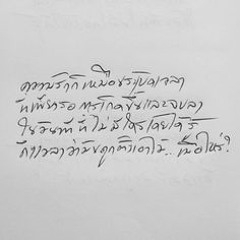 ความรักก็เหมือนระเบิดเวลา
ที่เพียงรอ การเกิดขึ้นและจบลง
ในวินาที ที่ไม่มีใครเคยได้รู้
ถึงเวลาว่ามันถูกตั้งเอาไว้.. เมื่อไหร่?